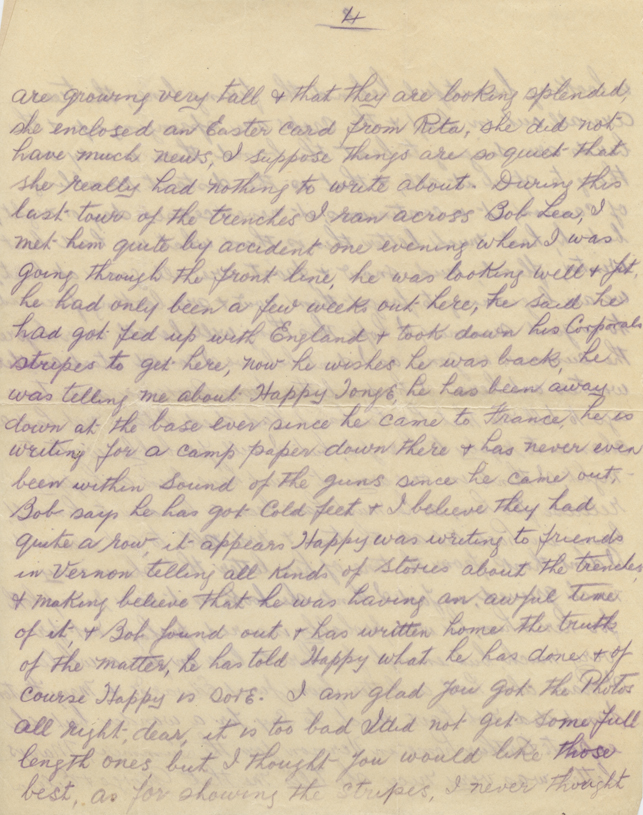 4
are growing very tall & that they are looking splended,
she enclosed an Easter card from Rita, she did not
have much news, I suppose things are so quiet that
she really had nothing to write about. During this
last tour of the trenches I ran across Bob Lea, I
met him quite by accident one evening when I was
going through the front line, he was looking well & fit,
he had only been a few weeks out here, he said he
had got fed up with England & took down his Corporals
stripes to get here, now he wishes he was back, he
was telling me about Happy Tonge, he has been away
down at the base ever since he came to France, he is
writing for a camp paper down there & has never even
been within sound of the guns since he came out,
Bob says he has got cold feet & I believe they had
quite a row, it appears Happy was writing to friends
in Vernon telling all kinds of stories about the trenches
& making believe that he was having an awful time
of it & Bob found out & has written home the truth
of the matter, he has told Happy what he has done & of
course Happy is sore. I am glad you got the Photos
all right, dear, it is too bad I did not get some full
length ones but I thought you would like those
best, as for showing the stripes, I never thought